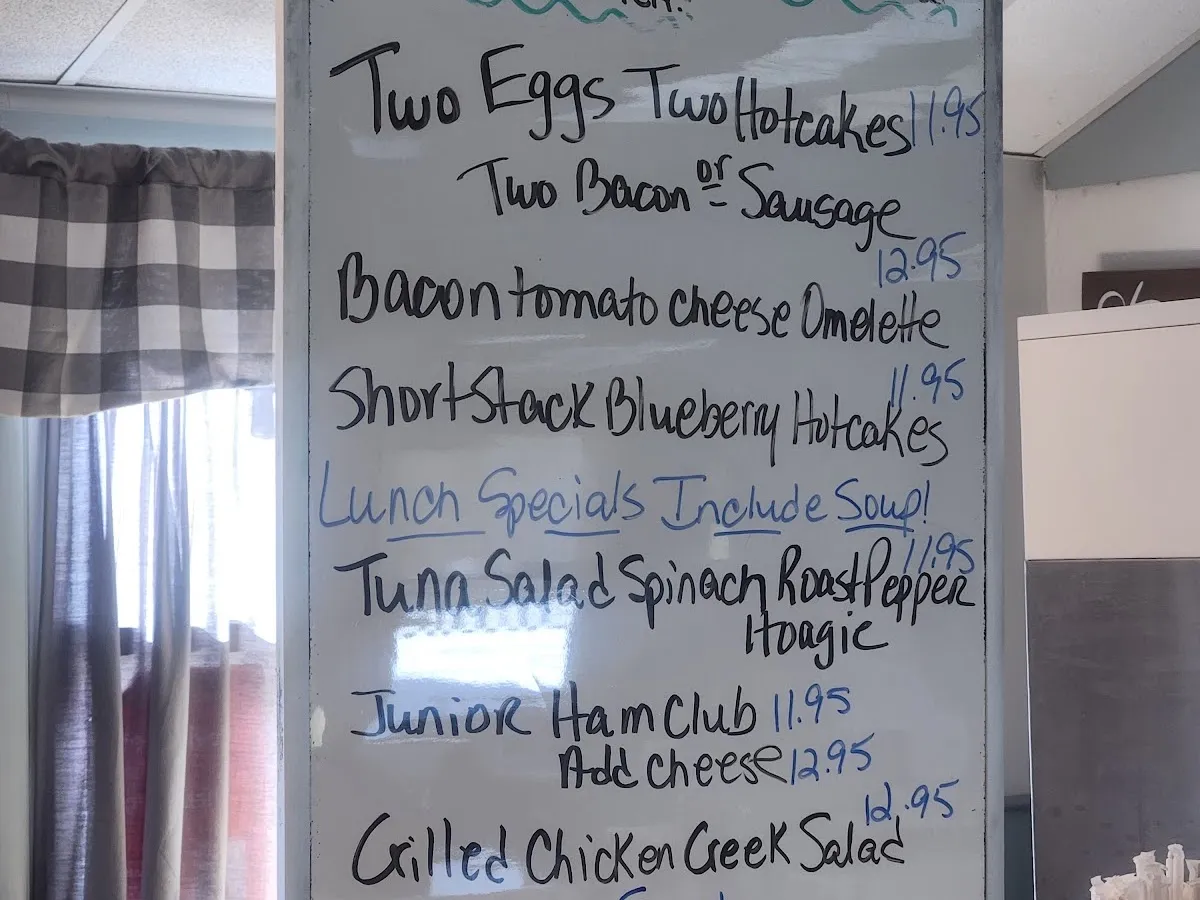 Two Eggs Two Hotcakes 11.95
Two Bacon or Sausage
12.95
Bacon tomato cheese Omelette
11.95
Short Stack Blueberry Hotcakes
Lunch Specials Include Soup!
11.95
Tuna Salad Spinach Roast Pepper
Hoagie
Junior Ham Club 11.95
Add cheese 12.95
12.95
Grilled Chicken Greek Salad